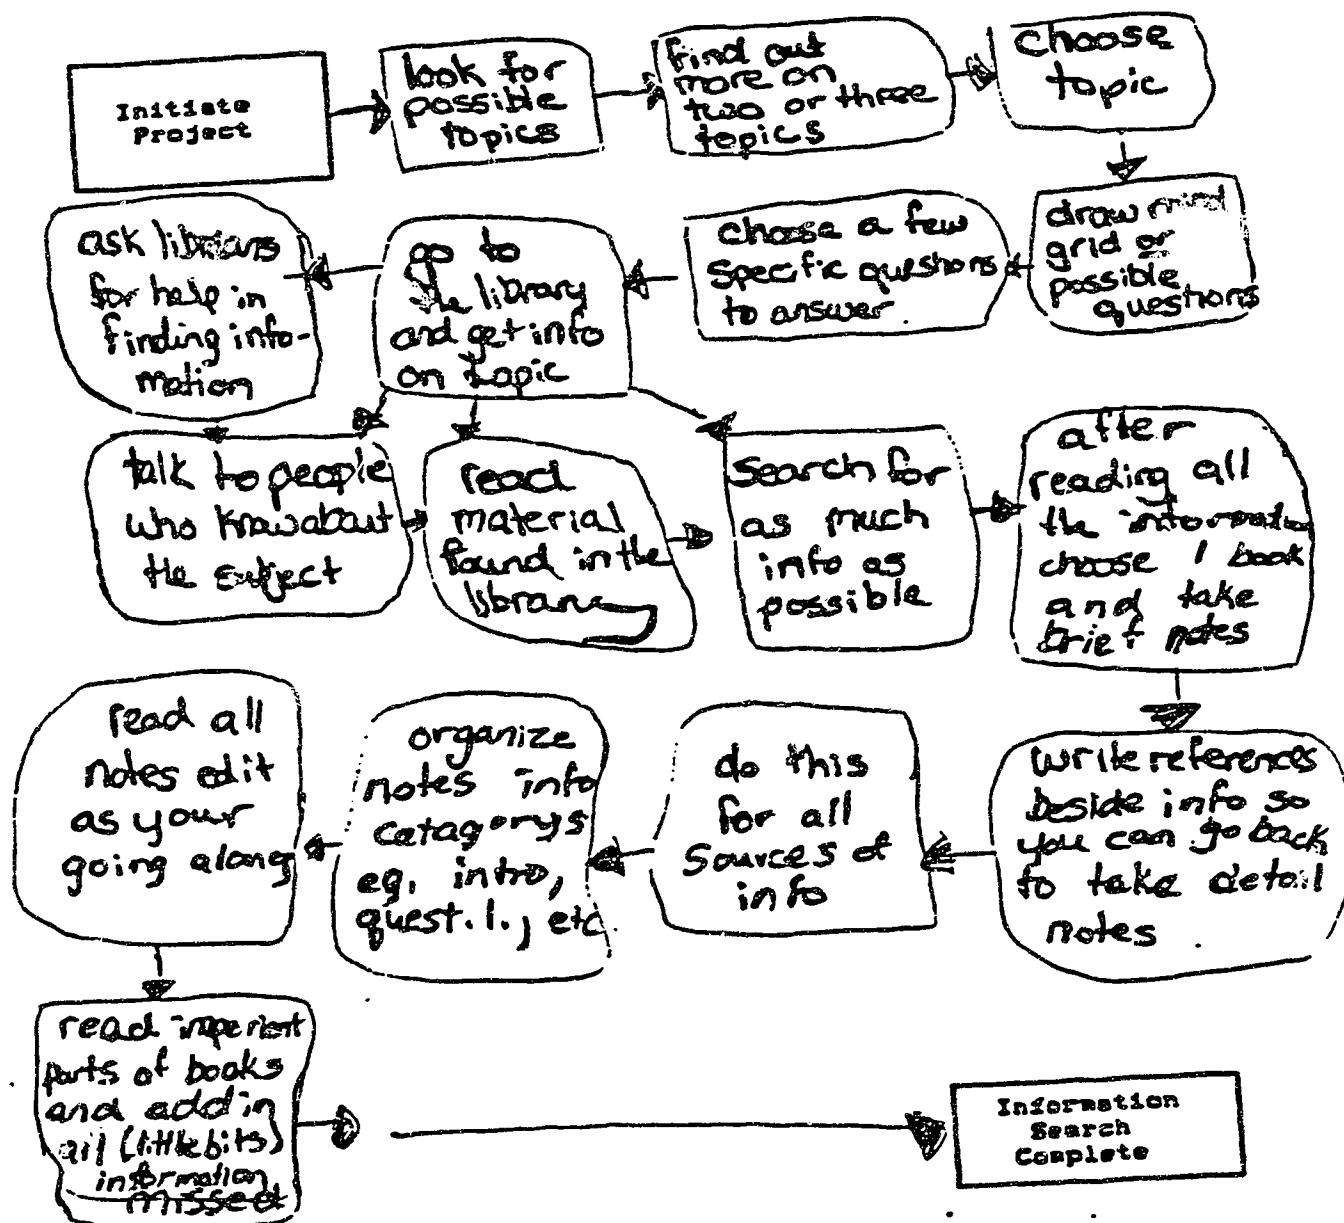 Initiate
Project
look for
possible
topics
find out
more on
two or three
topics
choose
topic
draw mind
grid or
possible
questions
choose a few
specific questions
to answer.
go to
the library
and get info
on topic
ask librians
for help in
finding info-
mation
talk to people
who know about
the subject
read
material
found in the
library
search for
as much
info as
possible
after
reading all
the information
choose 1 book
and take
brief notes
write references
beside info so
you can go back
to take detail
notes
do this
for all
sources of
info
organize
notes into
catagorys
eg. intro,
quest. 1., etc
read all
notes edit
as your
going along
read
parts of books
and add in
(little bits)
information
missed
Information
Search
Complete